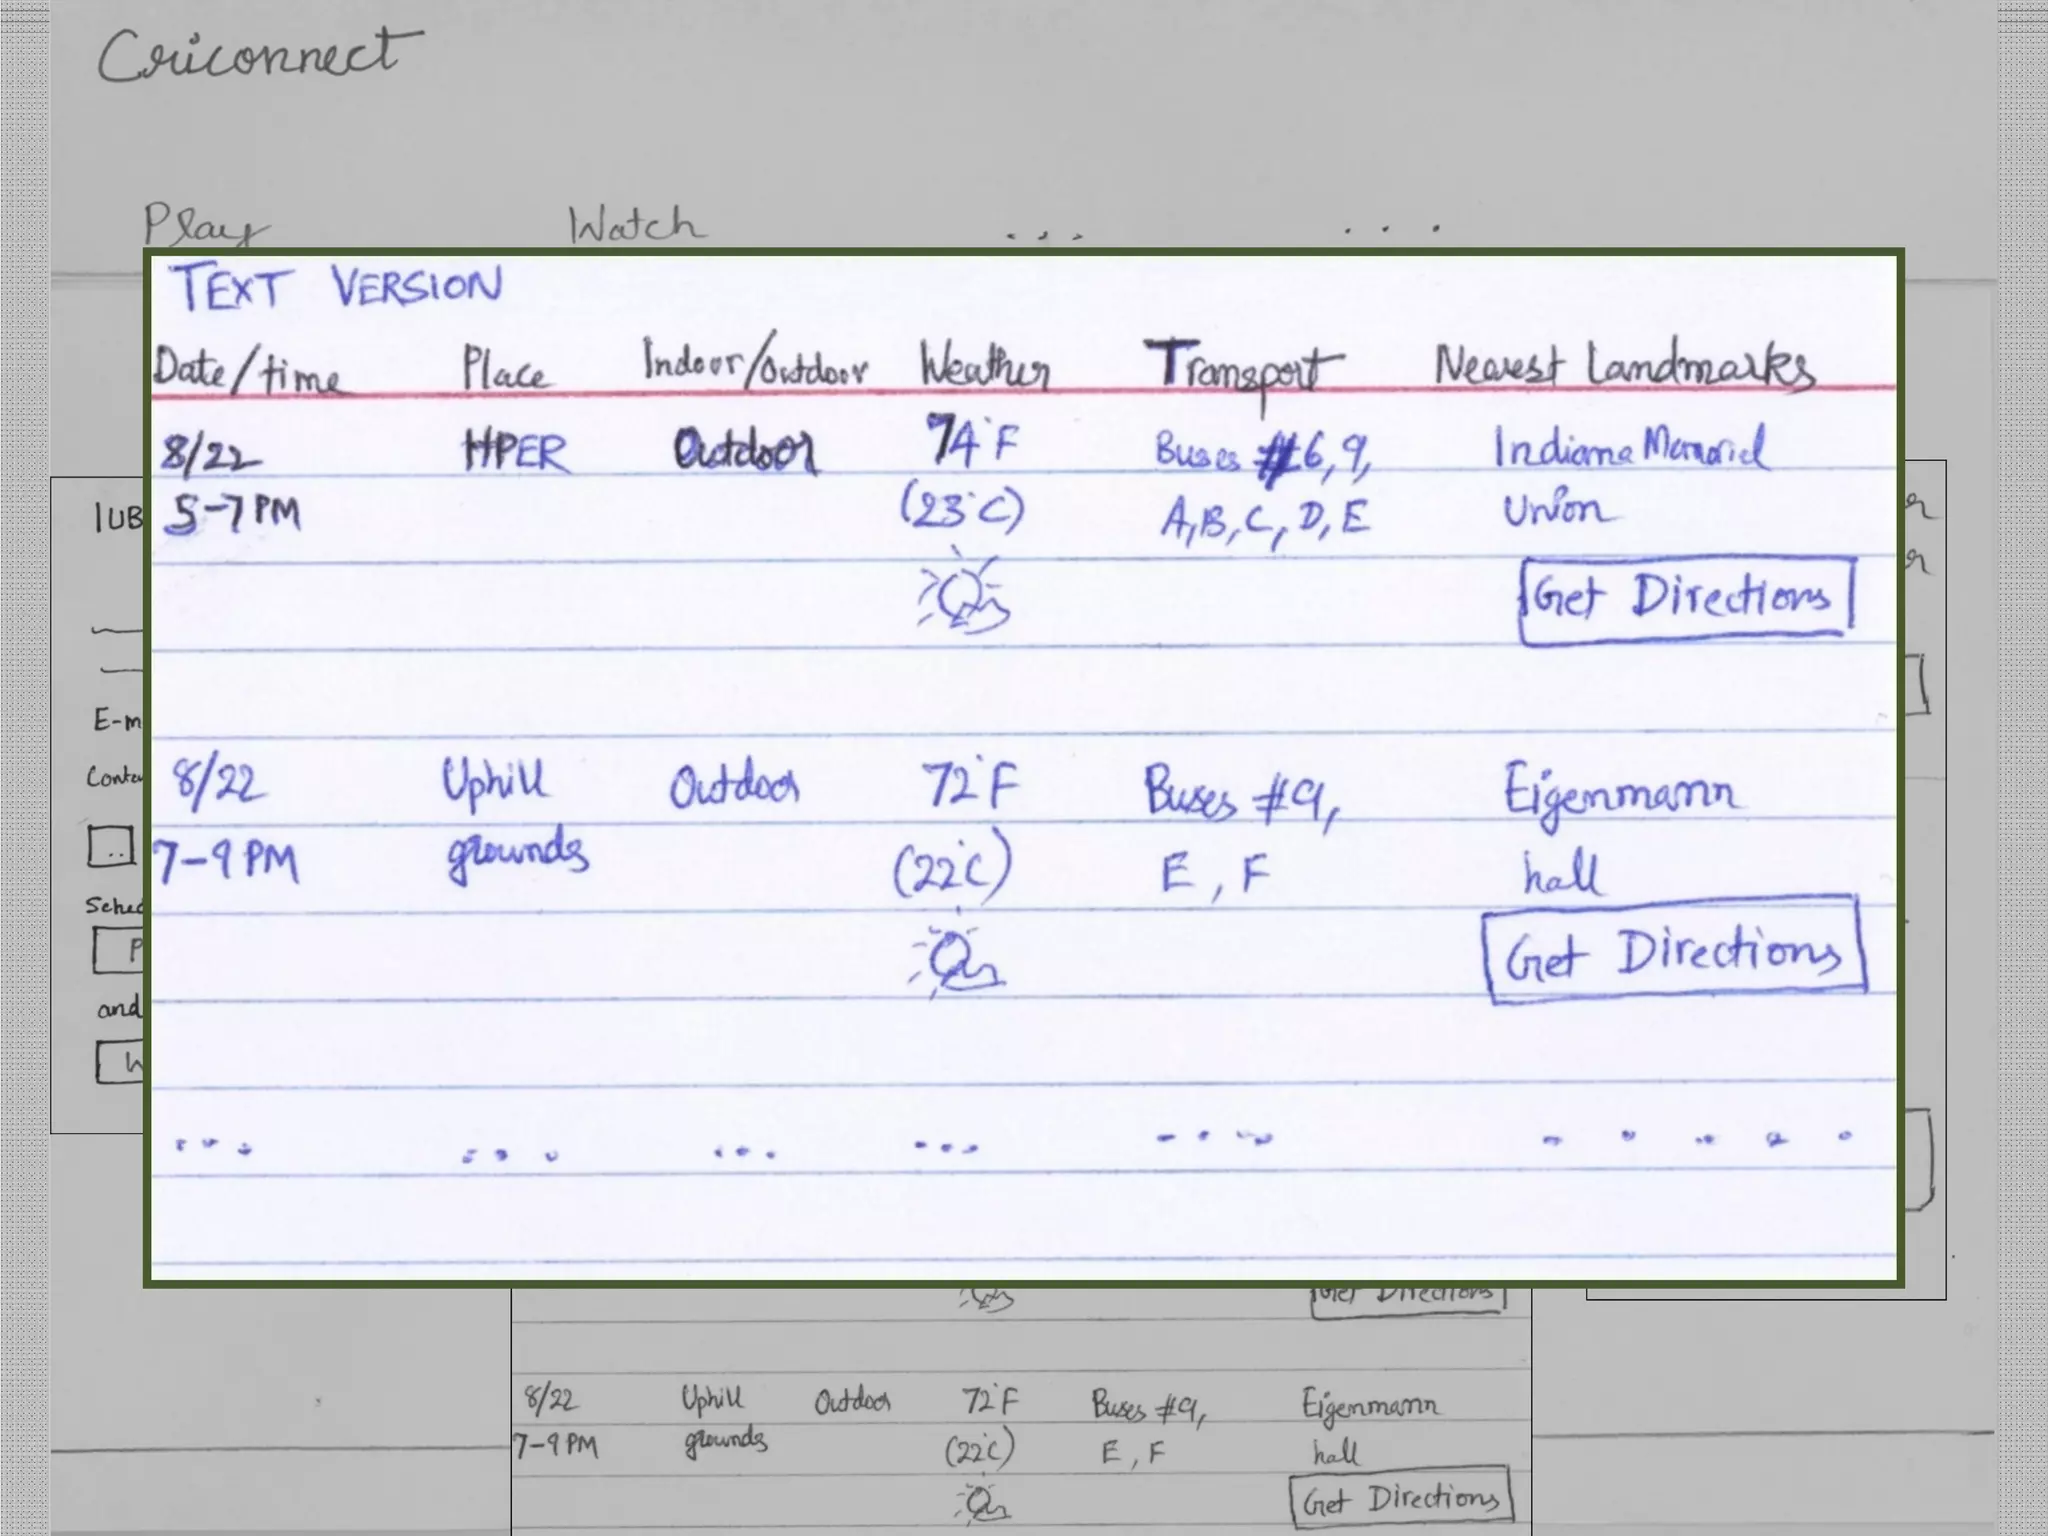 Criconnect
Play Watch ... ...
TEXT VERSION
Date/time Place Indoor/Outdoor Weather Transport Nearest Landmarks
8/22 HPER Outdoor 74°F Buses #6, 9, Indiana Memorial
5-7 PM (23°C) A, B, C, D, E Union
Get Directions
8/22 Uphill Outdoor 72°F Buses #9,
Eigenmann
7-9 PM grounds (22°C) E, F hall
Get Directions
... ... ... ... .... .....
IUB
E-m
Conta
..
Sched
P
and
W
Get Directions
8/22 Uphill Outdoor 72°F Buses #9, Eigenmann
7-9 PM grounds (22°C) E, F hall
Get Directions